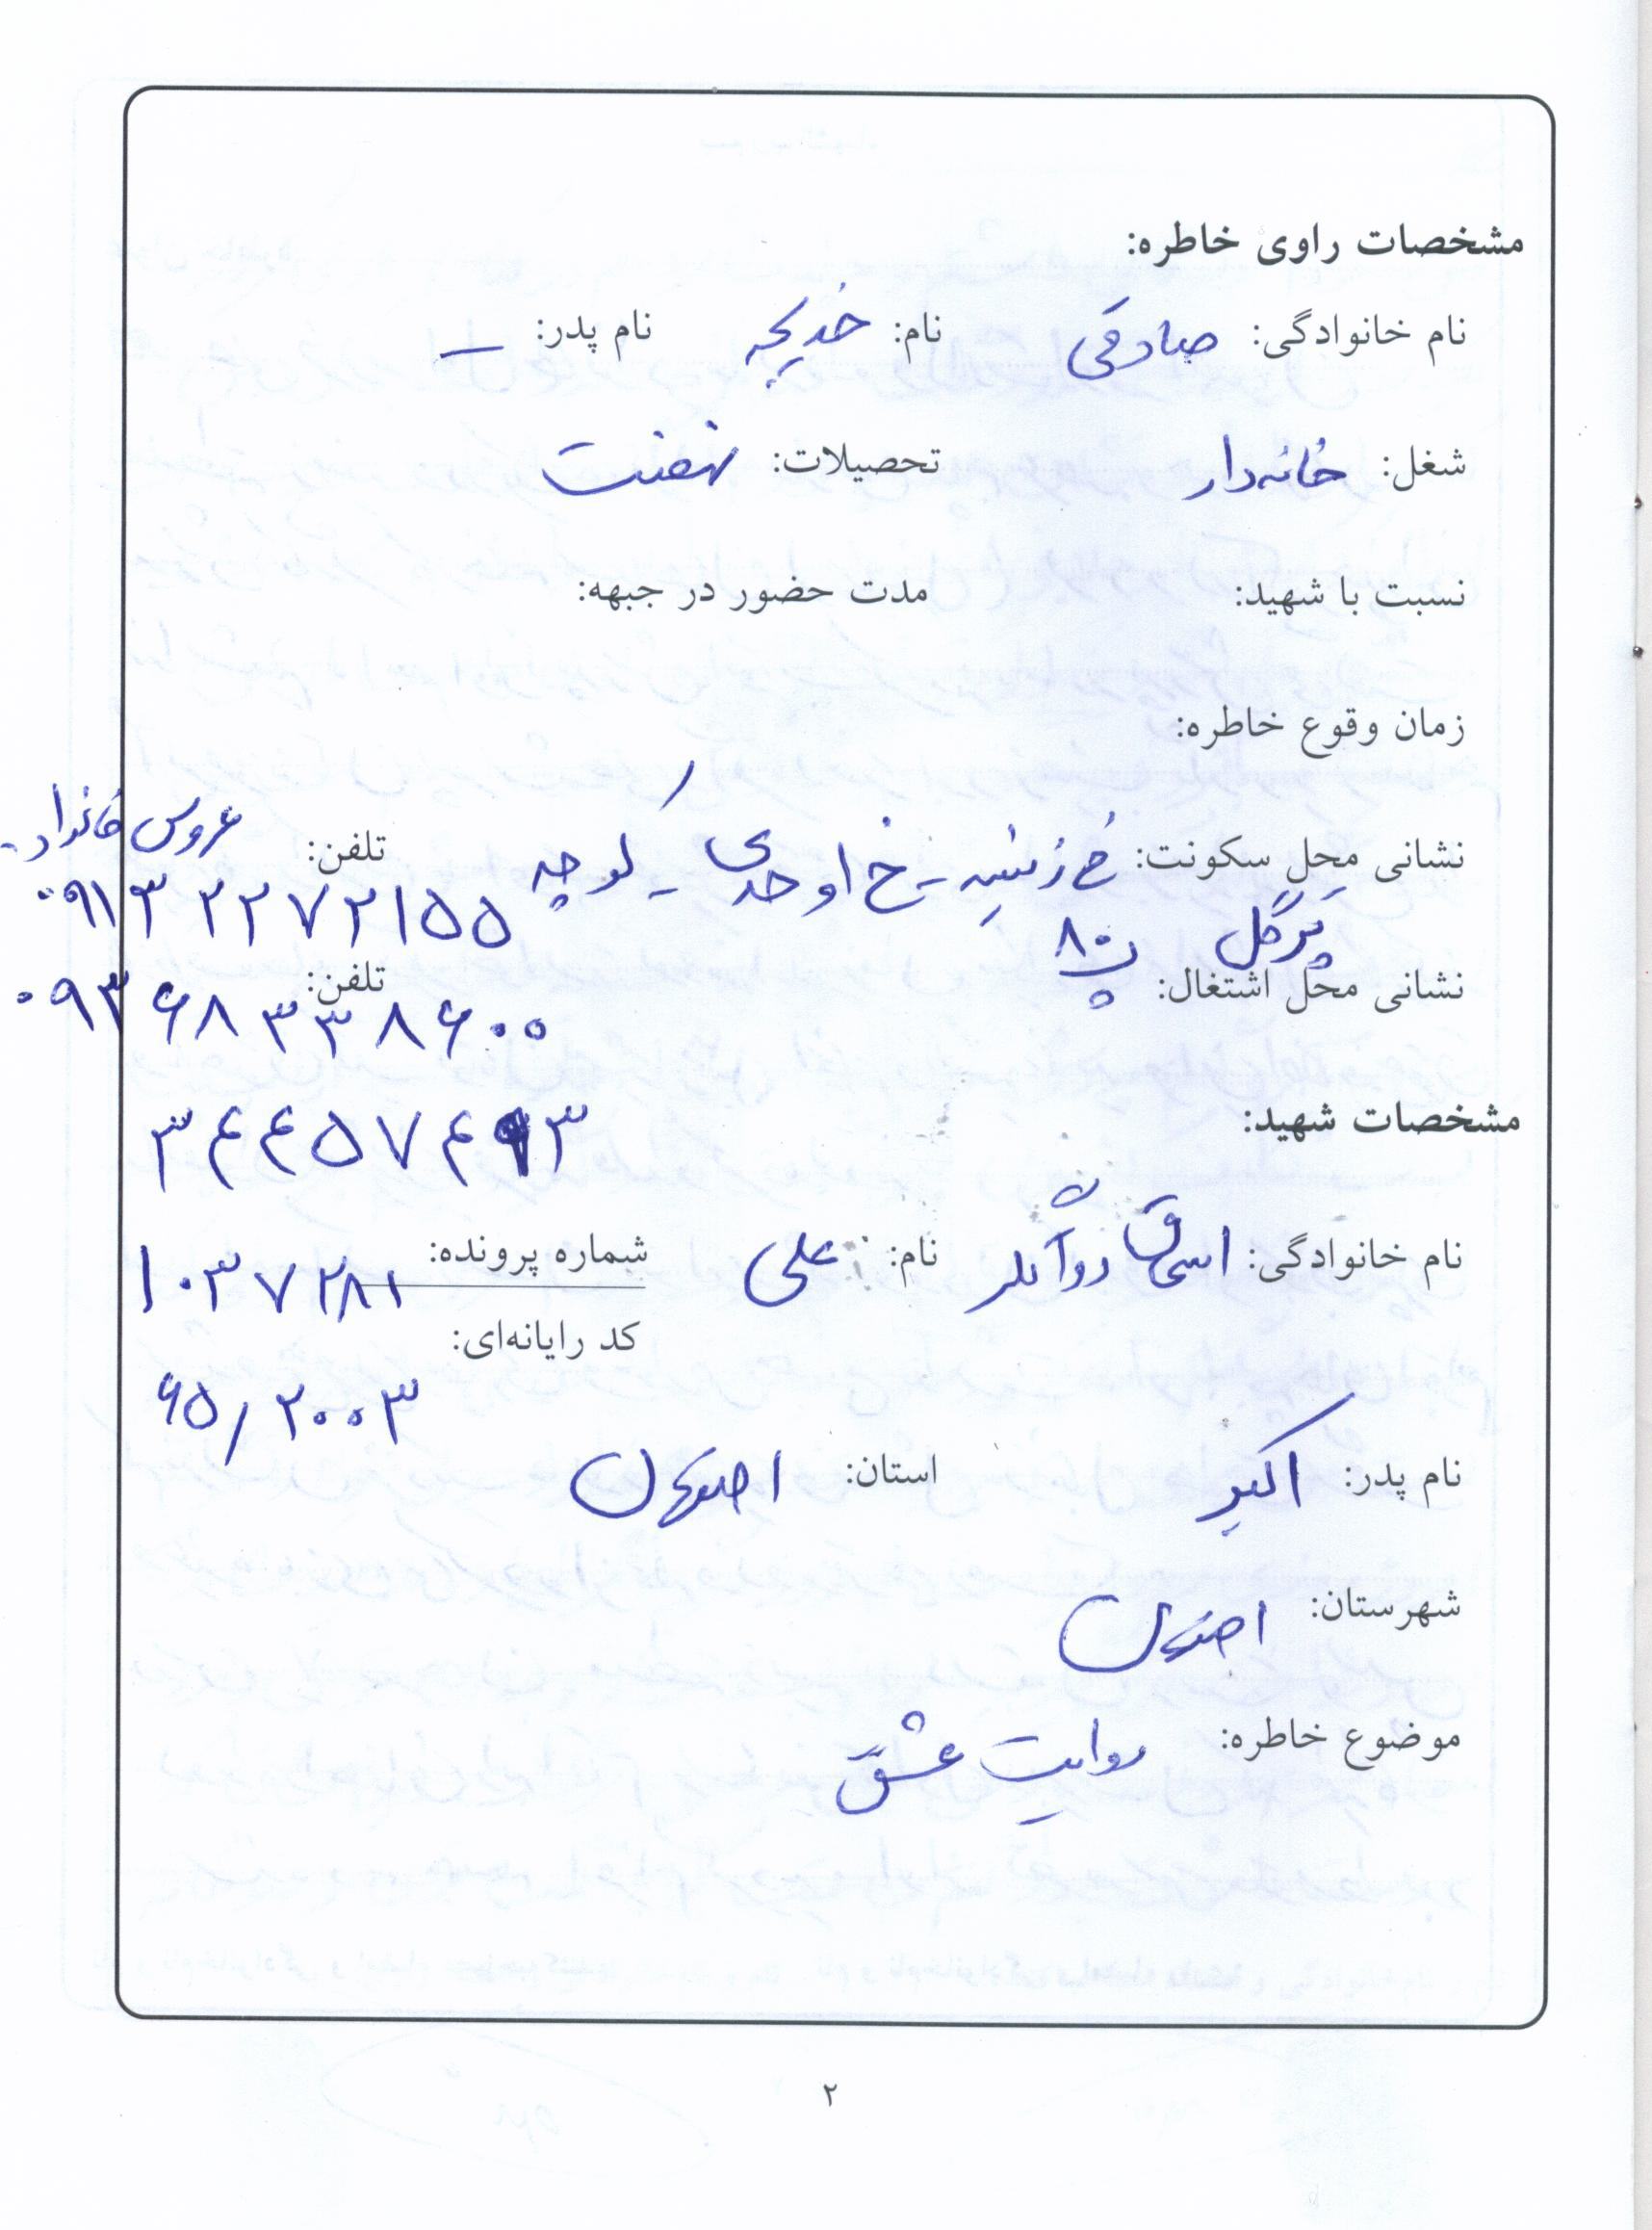 مشخصات راوی خاطره:
نام خانوادگی: صادقی نام: خدیجه نام پدر: —
شغل: خانه‌دار تحصیلات: نهضت
نسبت با شهید: مدت حضور در جبهه:
زمان وقوع خاطره:
نشانی محل سکونت: خ زینبیه - خ اوحدی - کوچه تلفن: عروس خانواده
پرگل پ ۸۰ ۰۹۱۳۲۲۷۲۱۵۵
نشانی محل اشتغال: تلفن:
۰۹۳۶۸۳۳۸۶۰۰
مشخصات شهید: ۳۴۴۵۷۴۹۳
نام خانوادگی: نام: علی شماره پرونده: ۱۰۳۷۲۸۱
کد رایانه‌ای:
۶۵/۲۰۰۳
نام پدر: اکبر استان: اصفهان
شهرستان: اصفهان
موضوع خاطره: روایت عشق
۲